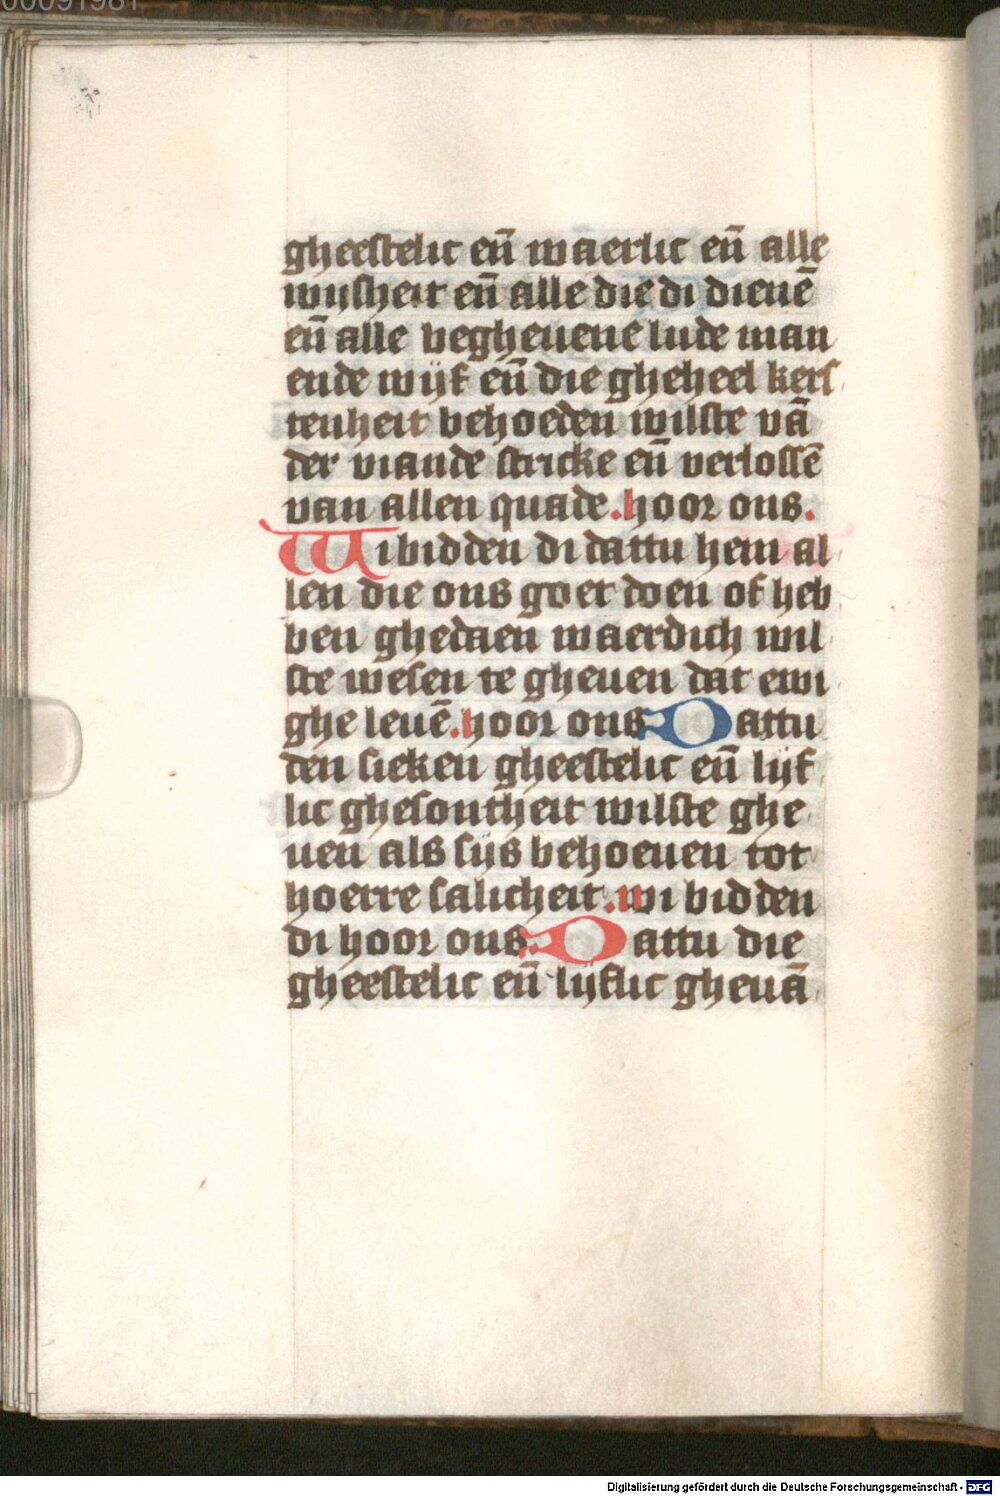 00091981
gheestelic en̄ waerlic en̄ alle
wijsheit en̄ alle die di dienē
en̄ alle begheuene lude man
ende wijf en̄ die gheheel kers
tenheit behoeden wilste vā
der viande stricke en̄ verlossē
van allen quade. hoor ons.
Wi bidden di dattu hem al
len die ons goet doen of heb
ben ghedaen waerdich wil
ste wesen te gheuen dat ewi
ghe leuē. hoor ons Dattu
den sieken gheestelic en̄ lijf
lic ghesontheit wilste ghe
uen als sijs behoeuen tot
hoerre salicheit. wi bidden
di hoor ons. Dattu die
gheestelic en̄ lijflic gheuā
Digitalisierung gefördert durch die Deutsche Forschungsgemeinschaft - DFG